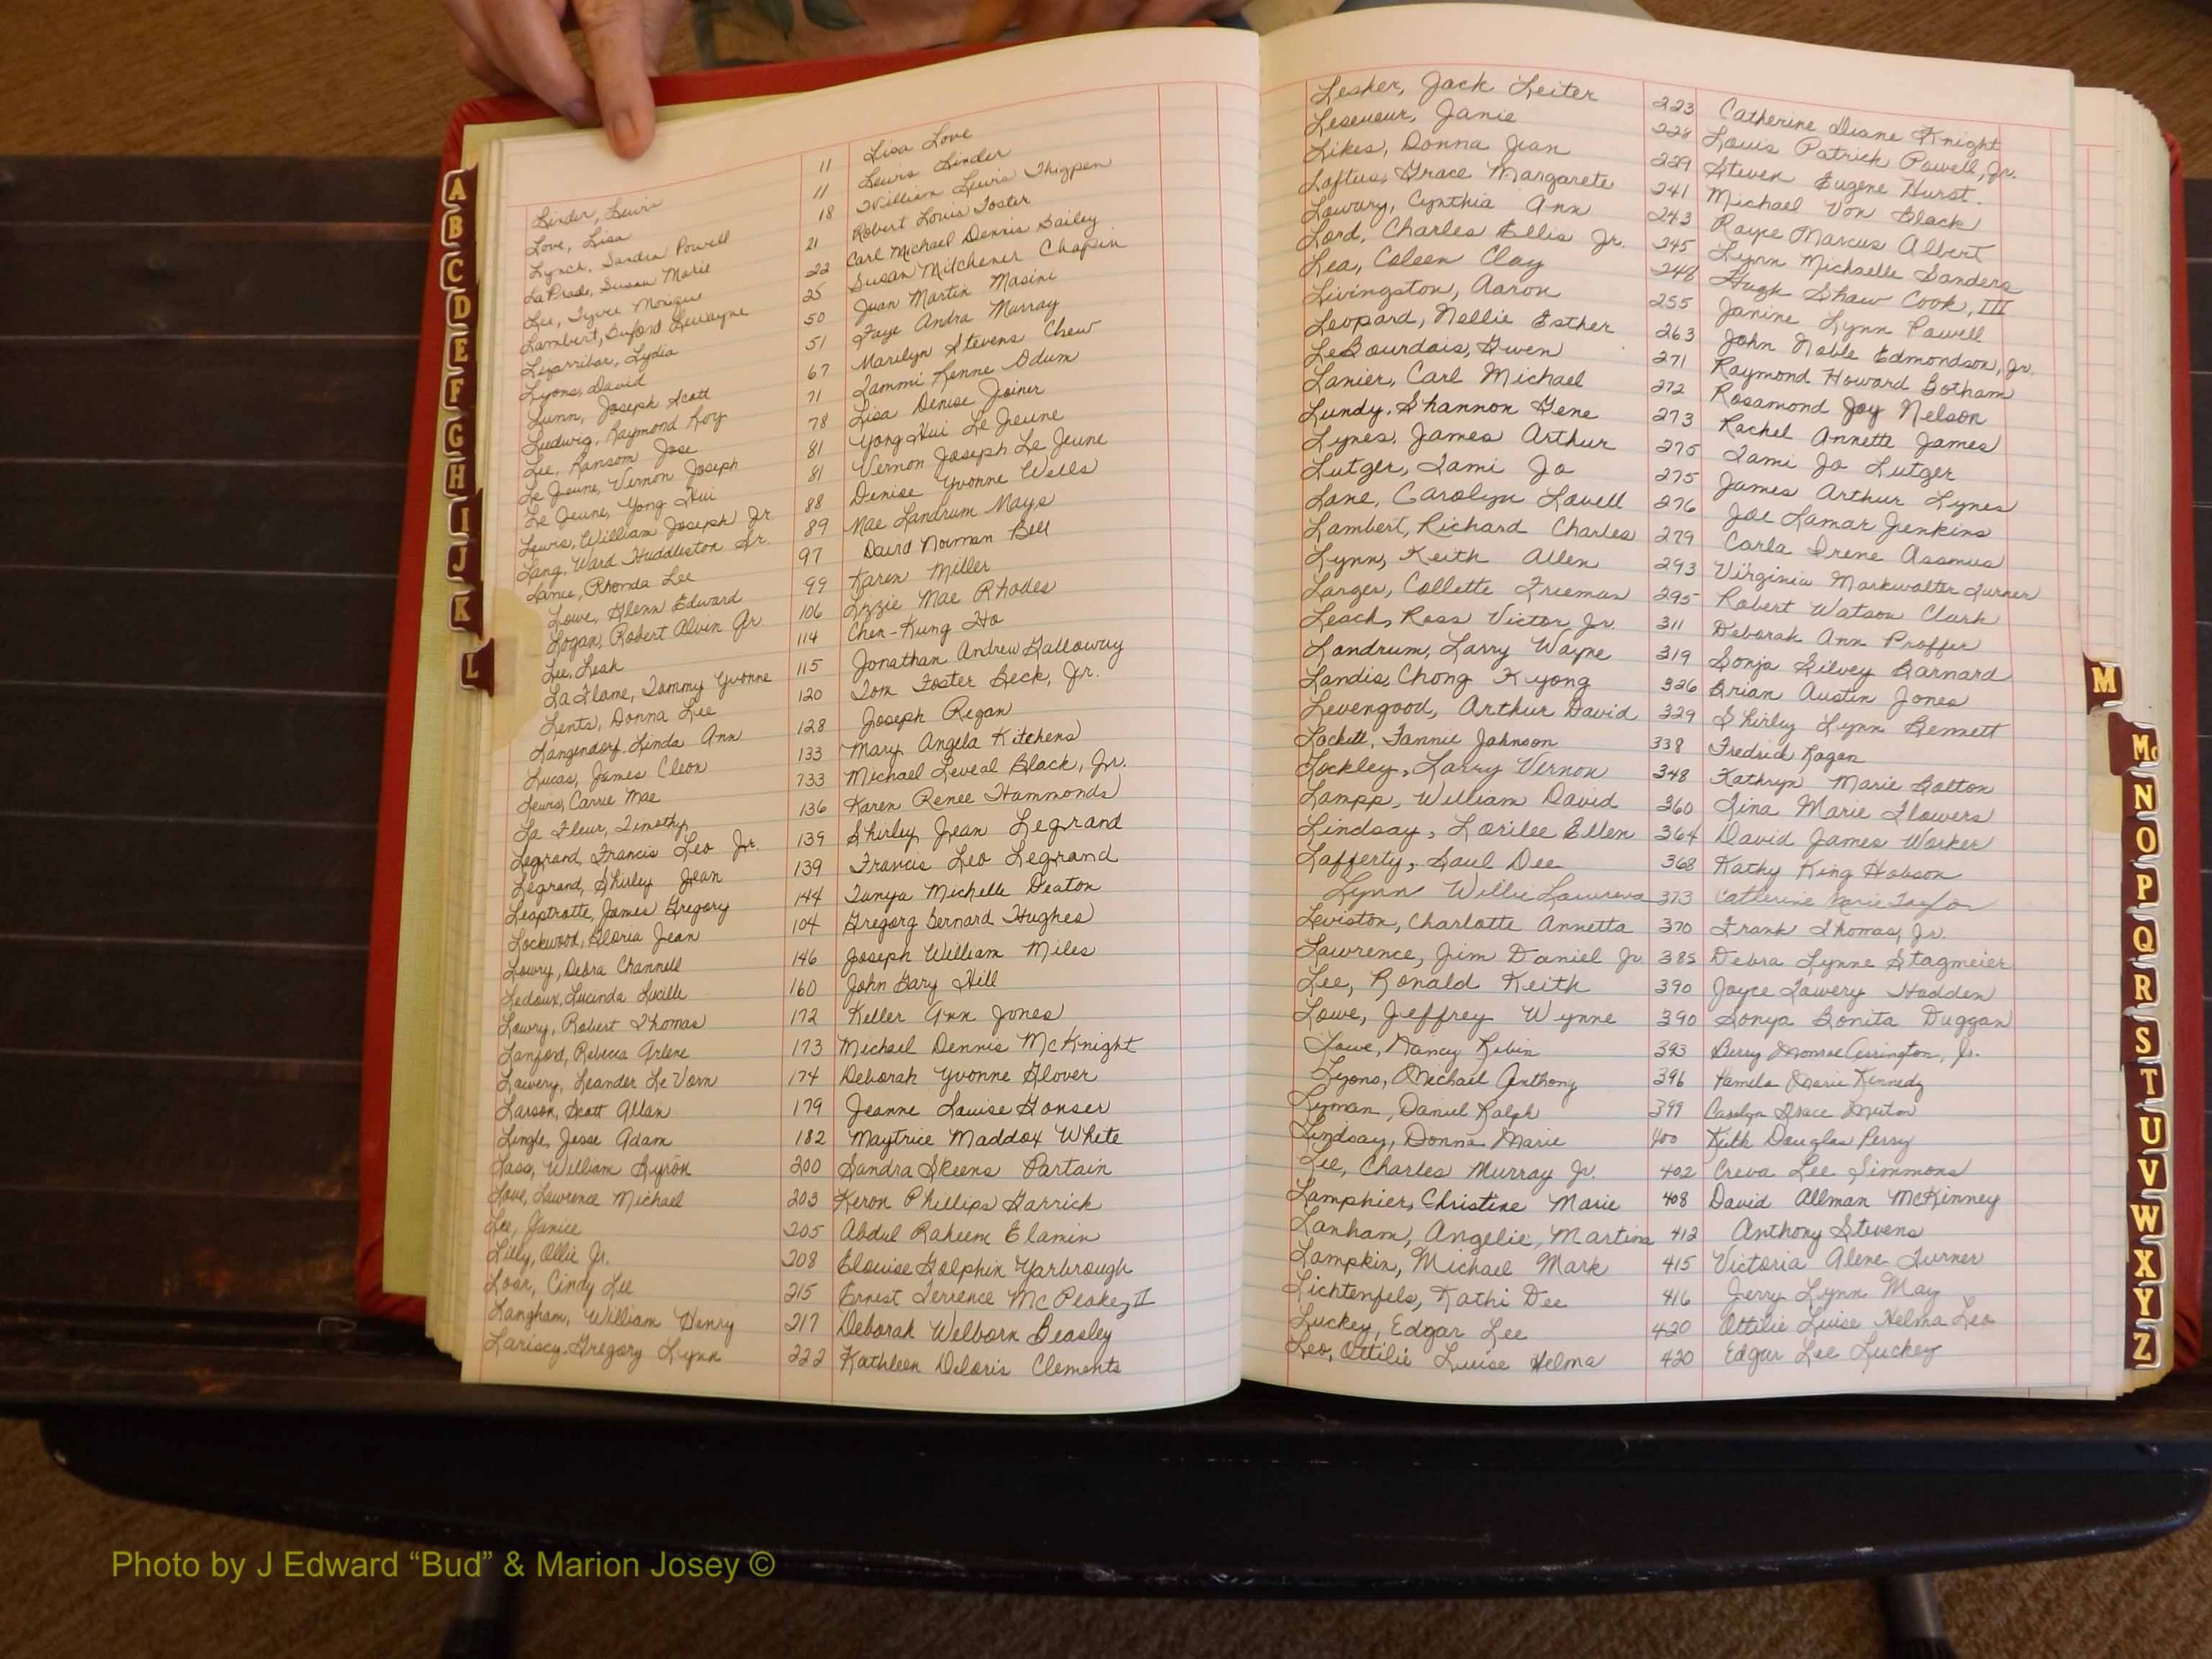 Linder, Lewis 11 Lisa Love
Love, Lisa 11 Lewis Linder
Lynch, Sandra Powell 18 William Lewis Thigpen
LaPrade, Susan Marie 21 Robert Louis Foster
Lee, Tyree Monique 22 Carl Michael Dennis Bailey
Lambert, Buford Lewayne 25 Susan Mitchener Chapin
Lizarribar, Lydia 50 Juan Martin Masini
Lyons, David 51 Faye Andra Murray
Lunn, Joseph Scott 67 Marilyn Stevens Chew
Ludwig, Raymond Roy 71 Tammi Renne Odum
Lee, Ransom Jose 78 Lisa Denise Joiner
Le Jeune, Vernon Joseph 81 Yong Hui Le Jeune
Le Jeune, Yong Hui 81 Vernon Joseph Le Jeune
Lewis, William Joseph Jr. 88 Denise Yvonne Wells
Lang, Ward Huddleston Sr. 89 Mae Landrum Mays
Lance, Rhonda Lee 97 David Norman Bell
Lowe, Glenn Edward 99 Karen Miller
Logan, Robert Alvin Jr 106 Lizzie Mae Rhodes
Lee, Leah 114 Chen-Kung Ho
LaFlame, Tammy Yvonne 115 Jonathan Andrew Galloway
Lentz, Donna Lee 120 Tom Foster Beck, Jr.
Langendorf, Linda Ann 128 Joseph Regan
Lucas, James Cleon 133 Mary Angela Kitchens
Lewis, Carrie Mae 133 Michael Leveal Black, Jr.
La Fleur, Timothy 136 Karen Renee Hammonds
Legrand, Francis Leo Jr. 139 Shirley Jean Legrand
Legrand, Shirley Jean 139 Francis Leo Legrand
Leaptrotte, James Gregory 144 Tanya Michelle Deaton
Lockwood, Gloria Jean 104 Gregorg Bernard Hughes
Lowry, Debra Channell 146 Joseph William Miles
Ledoux, Lucinda Lucille 160 John Gary Hill
Lowry, Robert Thomas 172 Keller Ann Jones
Lanford, Rebecca Arlene 173 Michael Dennis McKnight
Lawery, Leander Le Vorn 174 Deborah Yvonne Glover
Larson, Scott Allan 179 Jeanne Louise Gonser
Lingle, Jesse Adam 182 Maytrice Maddox White
Lass, William Byron 200 Sandra Skeens Partain
Love, Lawrence Michael 203 Keron Phillips Garrick
Lee, Janice 205 Abdul Raheem Elamin
Lilly, Ollie Jr. 208 Elouise Golphin Yarbrough
Loar, Cindy Lee 215 Ernest Terrence McPeake, II
Langham, William Henry 217 Deborah Welborn Beasley
Lariscy, Gregory Lynn 222 Kathleen Deloris Clements
Lesher, Jack Leiter 223 Catherine Diane Knight
Leseueur, Janie 228 Louis Patrick Powell, Jr.
Likes, Donna Jean 229 Steven Eugene Hurst.
Loftus, Grace Margarete 241 Michael Von Black
Lowary, Cynthia Ann 243 Rayce Marcus Albert
Lord, Charles Ellis Jr. 245 Lynn Michaelle Sanders
Lea, Coleen Clay 248 Hugh Shaw Cook, III
Livingston, Aaron 255 Janine Lynn Powell
Leopard, Nellie Esther 263 John Noble Edmondson, Jr.
LeBourdais, Gwen 271 Raymond Howard Botham
Lanier, Carl Michael 272 Rosamond Joy Nelson
Lundy, Shannon Gene 273 Rachel Annette James
Lynes, James Arthur 275 Tami Jo Lutger
Lutger, Tami Jo 275 James Arthur Lynes
Lane, Carolyn Lovell 276 Joe Lamar Jenkins
Lambert, Richard Charles 279 Carla Irene Assmus
Lynn, Keith Allen 293 Virginia Markwalter Turner
Larger, Collette Freeman 295 Robert Watson Clark
Leach, Ross Victor Jr. 311 Deborah Ann Proffer
Landrum, Larry Wayne 319 Sonja Silvey Barnard
Landis, Chong Kyong 326 Brian Austin Jones
Levengood, Arthur David 329 Shirley Lynn Bennett
Lockett, Fannie Johnson 338 Fredrick Ragan
Lockley, Larry Vernon 348 Kathryn Marie Bolton
Lampp, William David 360 Tina Marie Flowers
Lindsay, Lorilee Ellen 364 David James Worker
Lafferty, Saul Dee 368 Kathy King Hobson
Lynn Willie Lawrence 373 Catherine Marie Taylor
Leviston, Charlotte Annetta 370 Frank Thomas, Jr.
Lawrence, Jim Daniel Jr. 385 Debra Lynne Stagmeier
Lee, Ronald Keith 390 Joyce Lowery Hadden
Lowe, Jeffrey Wynne 390 Sonya Bonita Duggan
Lowe, Nancy Robin 393 Berry Monroe Arrington, Jr.
Lyons, Michael Anthony 396 Pamela Marie Kennedy
Lyman, Daniel Ralph 399 Carolyn Grace
Lindsay, Donna Marie 400 Keith Douglas Perry
Lee, Charles Murray Jr. 402 Creva Lee Simmons
Lamphier, Christine Marie 408 David Allman McKinney
Lanham, Angelie, Martina 412 Anthony Stevens
Lampkin, Michael Mark 415 Victoria Alene Turner
Lichtenfels, Kathi Dee 416 Jerry Lynn May
Luckey, Edgar Lee 420 Ottilie Luise Helma Leo
Leo, Ottilie Luise Helma 420 Edgar Lee Luckey
A
B
C
D
E
F
G
H
I
J
K
L
M
Mc
N
O
P
Q
R
S
T
U
V
W
X
Y
Z
Photo by J Edward “Bud” & Marion Josey ©